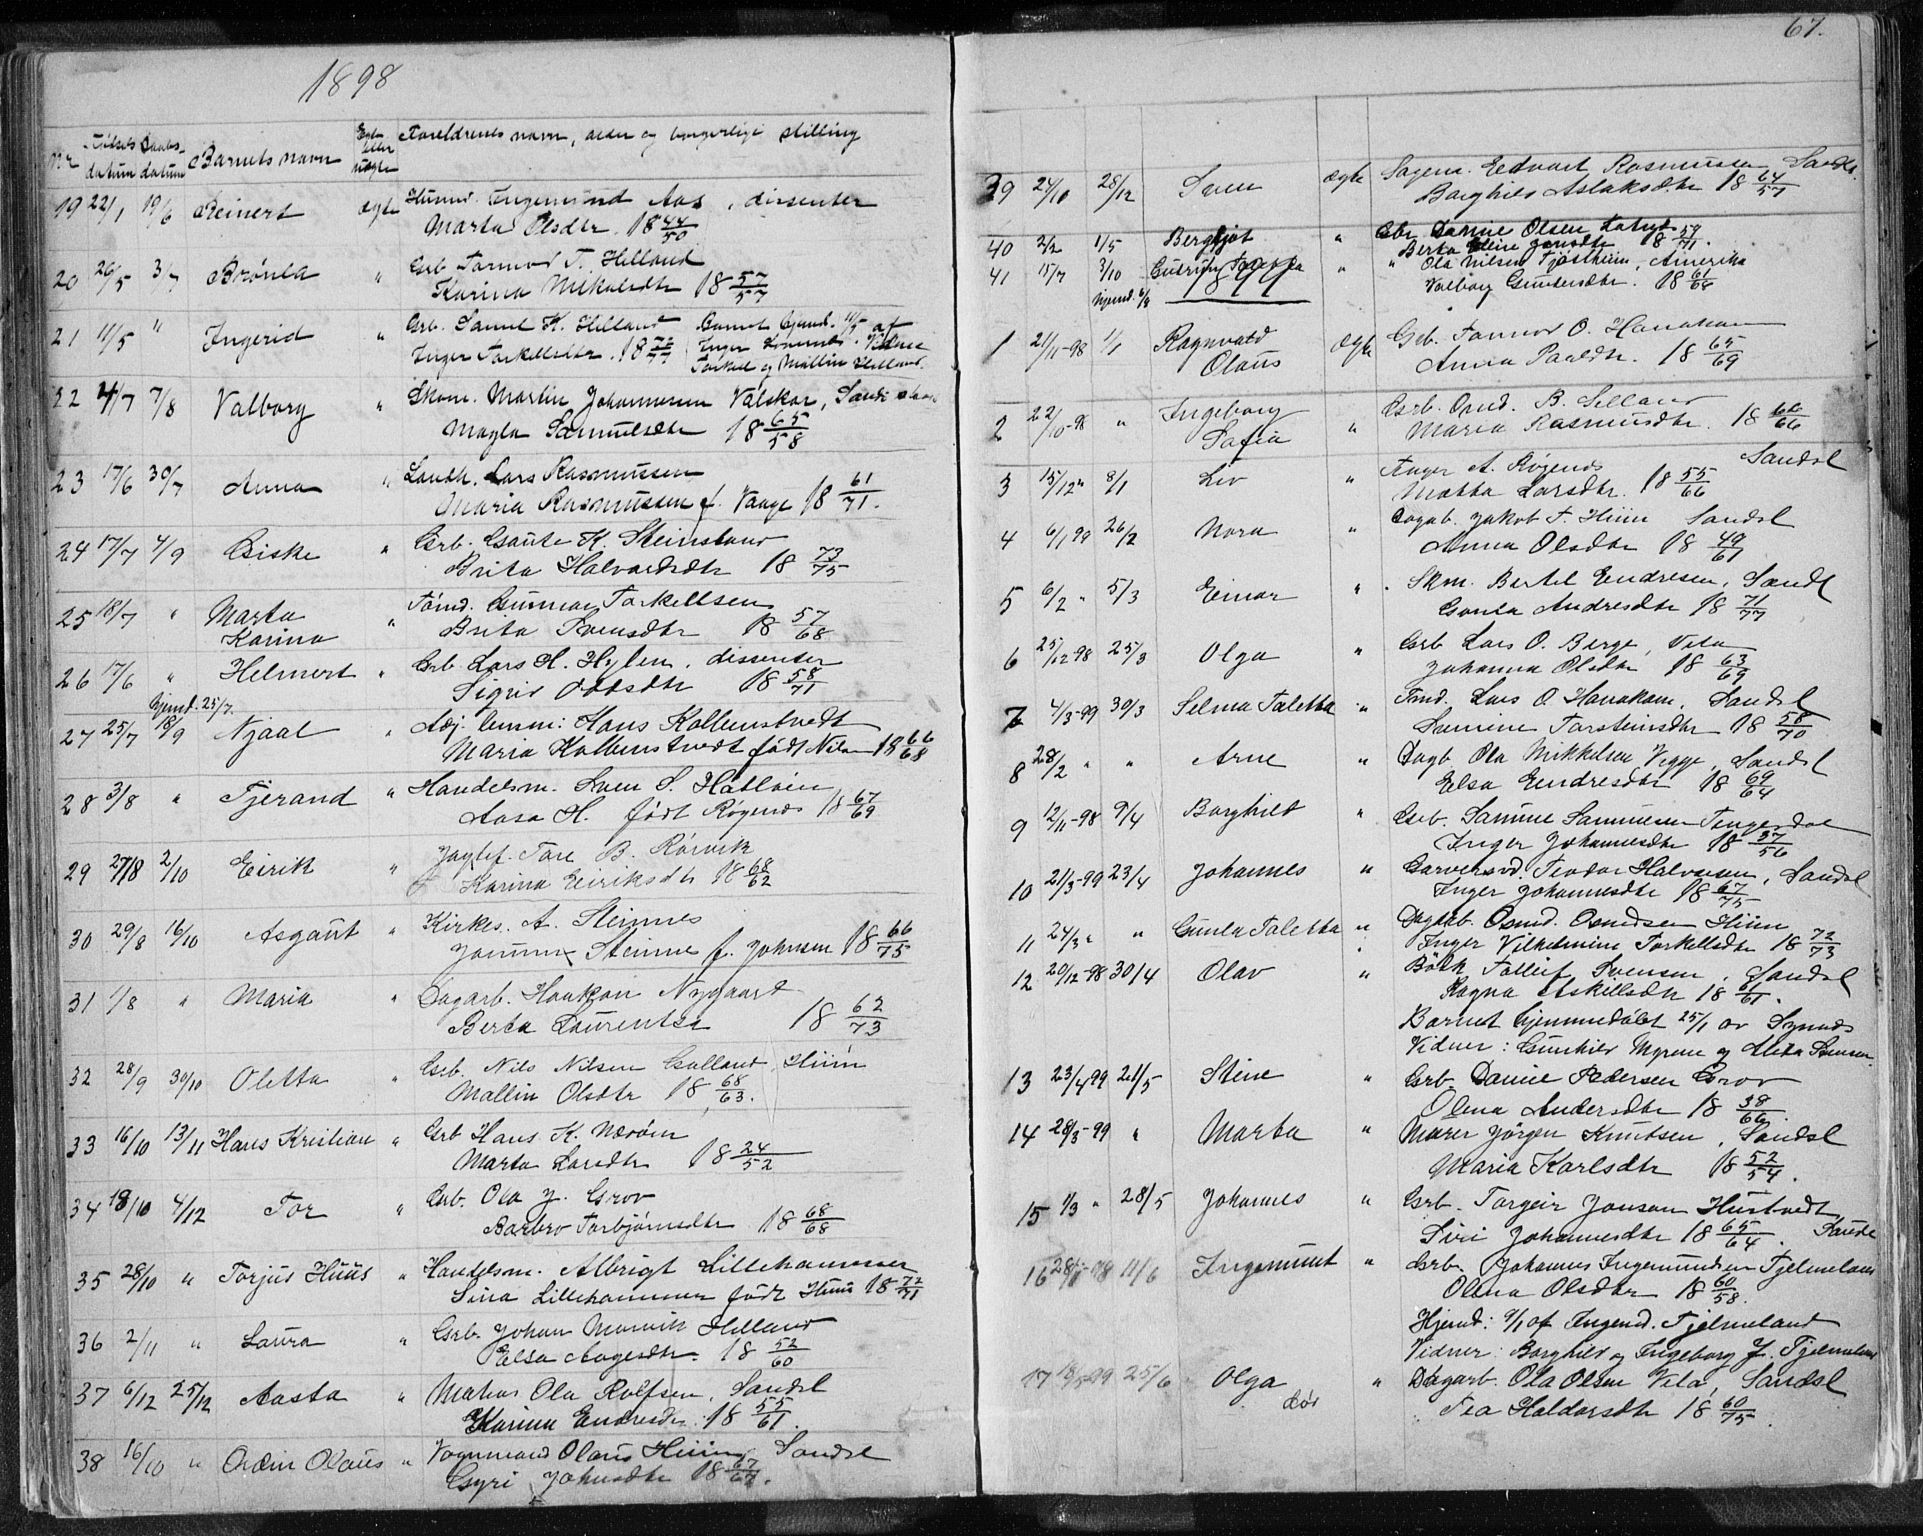 1898
Nr Fødsels datum Daabs- datum Barnets navn Egte eller uægte Foreldrenes navn, alder og borgerlige stilling
19 22/1 19/6 Reinert ægte Husmd. Ingemund Aas, dissenter
Marta Olsdtr. 18 44/50
20 26/5 3/7 Brønla " Grb Tormod T. Helland
Karina Mikalsdtr 18 57/57
21 11/5 " Ingerid " Grb. Samuel K. Helland Barnet hjemd. 11/5 af
Inger Torkellsdtr. 18 Inger Vidner
Torkel og Mallin Helland.
22 4/7 7/8 Valborg " Skom. Martin Johannesen Valskar, Sandsl
Magla Samuelsdtr 18 65/58
23 17/6 30/7 Anna " Landh. Lars Rasmussen
Maria Rasmussen f. Vaage 18 61/71.
24 17/7 4/9 Giske " Grb. Gaute K. Steinsland
Brita Halvardsdtr 18 73/75
25 18/7 " Marta " Tømd. Gunnar Torkellsen
Karina Brita Svensdtr 18 57/68
26 17/6 " Helmert " Grb Lars H. Hylen, dissenter
Sigrid Oddsdtr 18 58/71
hjemd. 25/7.
27 25/7 18/9 Njaal " Adj. Hans Kollenstvedt
Maria Kollenstvedt født Nilsen 18 66/68
28 3/8 " Tjerand " Handelsm. Sven S. Hatløien
Aasa H. født Røgenes 18 67/69
29 27/8 2/10 Eirik " Jagtef. Tore B. Rørvik
Karina Eiriksdtr 18 68/62
30 29/8 16/10 Asgaut " Kirkes. A. Steinnes
Steinnes f. Johnsen 18 66/75
31 1/8 " Maria " Dagarb. Haakon Nygaard
Berta Laurentse 18 62/73
32 28/9 30/10 Oletta " Grb. Nils Nilsen Galland, Hiim
Mallin Olsdtr 18 68/63.
33 16/10 13/11 Hans Kristian " Grb Hans K. Nærøen
Marta Larsdtr 18 24/52
34 18/10 4/12 Tor " Grb. Ola J. Grov
Barbro Torbjørnsdtr 18 68/68
35 28/10 " Torjus Huus " Handelsm. Albrigt Lillehammer
Sina Lillehammer født Huus 18 72/71
36 2/11 " Laura " Grb. Johan Marvik Helland
Elsa Aagesdtr. 18 52/60
37 6/12 25/12 Aasta " Matros Ola Rolfsen, Sandsl
Karina Endresdtr. 18 55/61.
38 16/10 " Odin Olaus " Vognmand Olaus Hiim, Sandsl
Gyri Johnsdtr 18 67/67.
67.
39 24/10 28/12 Sven ægte Sagem. Edvart Rasmussen Sandsl.
Borghild Aslaksdtr 18 64/57
40 2/2 1/5 Bergljot " Grb Daniel Olsen
Berta Jonsdtr 18 59/71.
41 15/7 3/10 " " Ola Nilsen Tjøstheim, Amerika
hjemd. 6/8 Valborg Gundersdtr. 18 61/66
1899
1 21/11-98 1/1 Ragnvald ægte Grb. Tormod O. Hanakam
Olaus Anna Paalsdtr. 18 65/69
2 22/10-98 " Ingeborg " Grb. Osmd. B. Selland
Safia Maria Rasmusdtr. 18 66/66
3 15/12 " 8/1 Liv " A. Røgenes Sandsl
Matha Larsdtr. 18 55/66
4 6/1 99 26/2 Nora " Dagab. Jakob T. Hiim Sandsl
Anna Olsdtr 18 49/61
5 6/2 " 5/3 Einar " Skm. Bertel Endresen, Sandsl
Gunla Andresdtr 18 71/77
6 25/12-98 25/3 Olga " Grb Lars O. Berge, Vela
Johanna Olsdtr 18 63/69
7 4/3-99 30/3 Selma Taletta " Tmd. Lars O. Hanakam, Sandsl
Samine Torsteinsdtr 18 58/70
8 28/2 " " Arne " Dagb Ola Mikkelsen Vegge, Sandsl
Elsa Endresdtr 18 69/64
9 12/11-98 9/4 Borghild " Grb. Samuel Samuelsen Tengesdal
Inger Johannesdtr 18 37/56
10 21/3-99 23/4 Johannes " Garversvd. Teodor Halvorsen, Sandsl
Inger Johannesdtr 18 67/75
11 24/3 " " Gunla Taletta " Dagarb. Osmd. Osmdsen Hiim
Inger Vilhelmine Torkellsdtr 18 72/73
12 20/12-98 30/4 Olav " Bøtk Tolleif Svensen, Sandsl
Ragna Askellsdtr 18 61/61.
Barnet hjemmedøbt 25/1 av
Vidner: Gunhild Myrene og
13 23/4 99 21/5 Stine " Grb. Daniel Pedersen Grov
Olena Andersdtr 18 38/66.
14 28/3-99 " Marta " Murer Jørgen Knutsen, Sandsl
Maria Karlsdtr 18 52/54.
15 1/3 " 28/5 Johannes " Grb. Torgeir Jonson Hustvedt
Siri Johannesdtr 18 65/64. Saude
16 98 11/6 Ingemund " Grb. Johannes Ingemundsen Tjelmeland
Olena Olsdtr 18 60/58.
Hjemd: 9/1 of Ingemd. Tjelmeland
Vidner: Borghild og Ingeborg J. Tjelmeland
17 18/5-99 25/6 Olga " Dagarb. Ola Olsen Vela, Sandsl
død Tea Haldorsdtr 18 60/75.